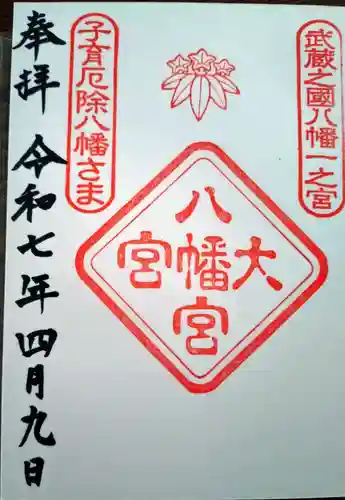 武蔵之國八幡一之宮
大宮
八幡宮
子育厄除八幡さま
奉拝
令和七年四月九日